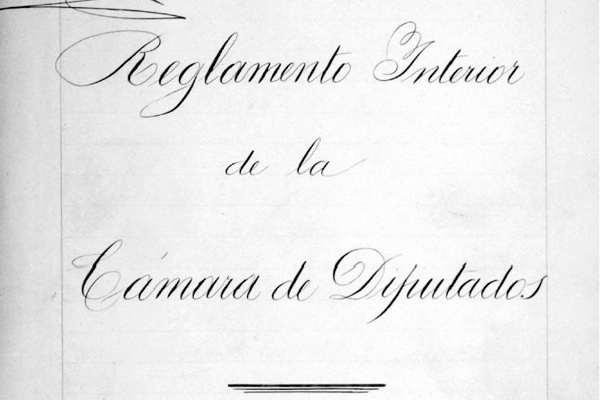 Reglamento Interior
de la
Cámara de Diputados